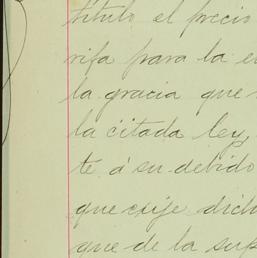 título el precio
rifa para la e
la gracia que
la citada ley,
te á su debido
que exije dich
que de la sup